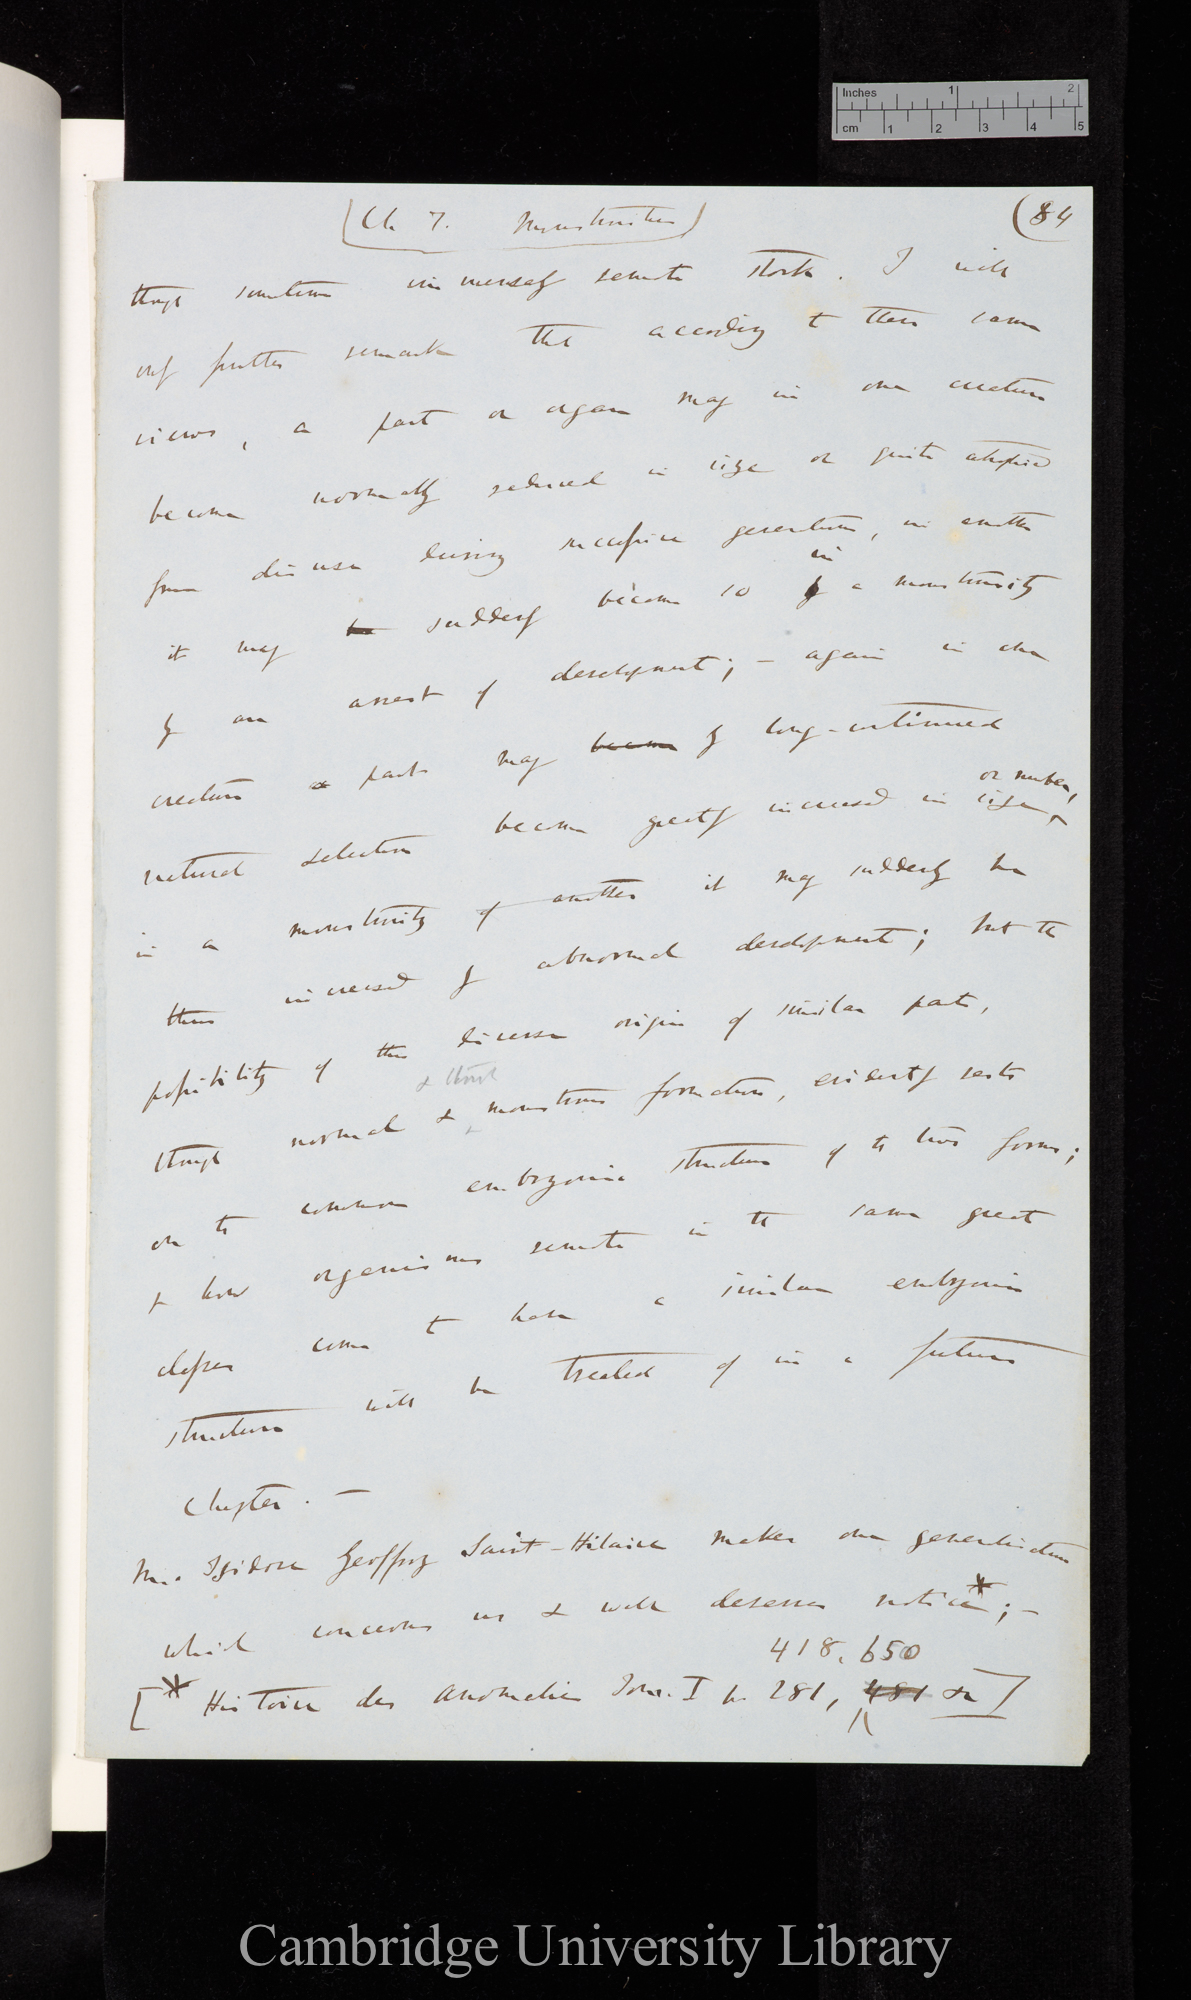 Inches 1 2
cm 1 2 3 4 5
(Ch 7. Monstrosities)
(84
though sometimes immensely remote stock. I will
only further remark that according to these same
views, a part or organ may in one creature
become normally reduced in size or quite atrophied
from disuse during successive generations, in another
in
it may be suddenly become so by a monstrosity
by an arrest of development; – again in one
creature a part may become by long-continued
or number,
natural selection become greatly increased in size,
in a monstrosity of another it may suddenly be
thus increased by abnormal development; but the
possibility of this diverse origin of similar parts,
& though
though normal & monstrous formations, evidently rests
on the common embryonic structure of the two forms;
& how organisms remote in the same great
classes come to have a similar embryonic
structure will be treated of in a future
Chapter. –
M. Isidore Geoffroy Saint-Hilaire makes one generalisation
which concerns us & well deserves notice*; –
418, 650
[* Histoire des Anomalies Tom. I p. 281, 481 &c]
Cambridge University Library